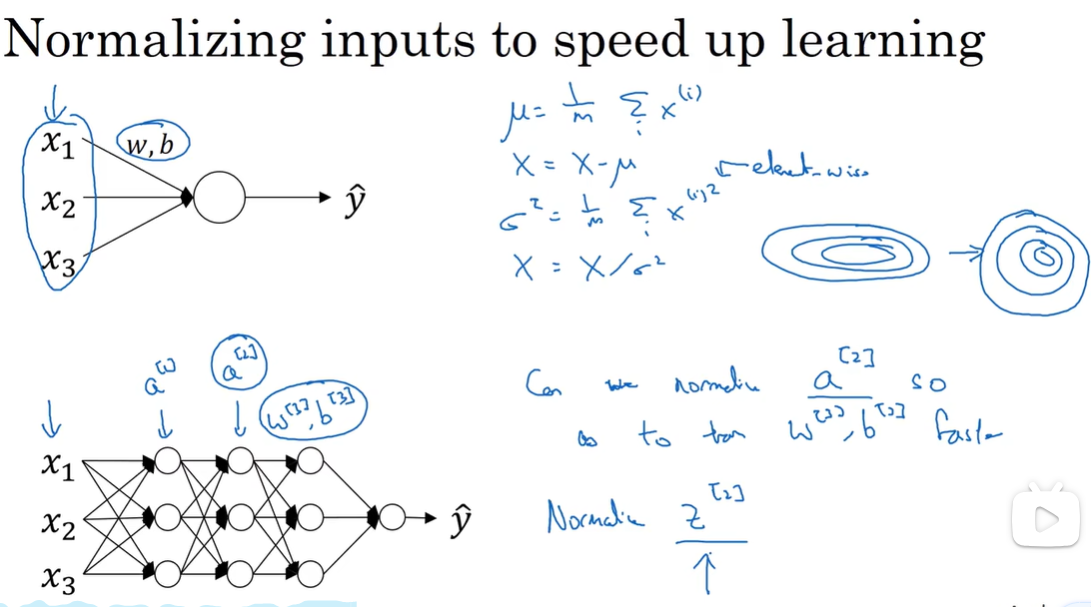 Normalizing inputs to speed up learning
x₁
x₂
x₃
w, b
ŷ
μ = 1/m Σᵢ x⁽ⁱ⁾
X = X - μ
σ² = 1/m Σᵢ x⁽ⁱ⁾² ← element-wise
X = X/σ²
a^[1]
a^[2]
w^[3], b^[3]
x₁
x₂
x₃
ŷ
Can we normalize a^[2] so
as to train w^[3], b^[3] faster
Normalize z^[2]